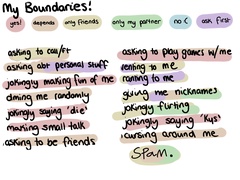 My Boundaries!
yes! depends only friends only my partner no :( ask first
asking to call/ft
asking abt personal stuff
jokingly making fun of me
dming me randomly
jokingly saying 'die'
making small talk
asking to be friends
asking to play games w/me
venting to me
ranting to me
giving me nicknames
jokingly flirting
jokingly saying 'kys'
cursing around me
spam.